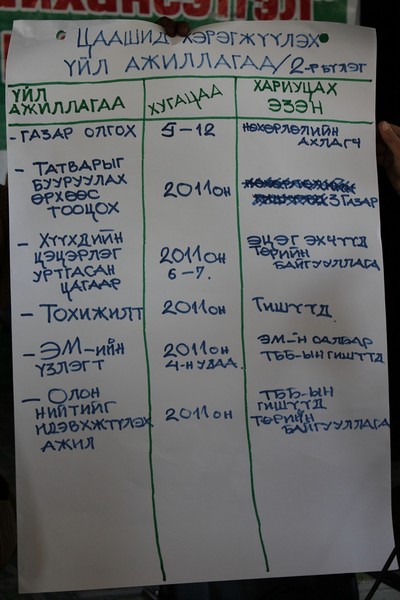 ЦААШИД ХЭРЭГЖҮҮЛЭХ
ҮЙЛ АЖИЛЛАГАА/2-Р БҮЛЭГ
ҮЙЛ АЖИЛЛАГАА
ХУГАЦАА
ХАРИУЦАХ ЭЗЭН
- ГАЗАР ОЛГОХ
5-12
НӨХӨРЛӨЛИЙН
АХЛАГЧ
- ТАТВАРЫГ
БУУРУУЛАХ
ӨРХӨӨС
ТООЦОХ
2011 ОН
ЗГАЗАР
- ХҮҮХДИЙН
ЦЭЦЭРЛЭГ
УРТГАСАН
ЦАГААР
2011 ОН
6-7.
ЭЦЭГ ЭХЧҮҮД
ТӨРИЙН
БАЙГУУЛЛАГА
- ТОХИЖИЛТ
2011 ОН
ГИШҮҮД
- ЭМ-ИЙН
ҮЗЛЭГТ
2011 ОН
4-Н УДАА.
ЭМ-Н САЛБАР
ТББ-ЫН ГИШҮҮД
- ОЛОН
НИЙТИЙГ
ИДЭВХЖТҮЛЭХ
АЖИЛ
2011 ОН
ТББ-ЫН
ГИШҮҮД
ТӨРИЙН
БАЙГУУЛЛАГА